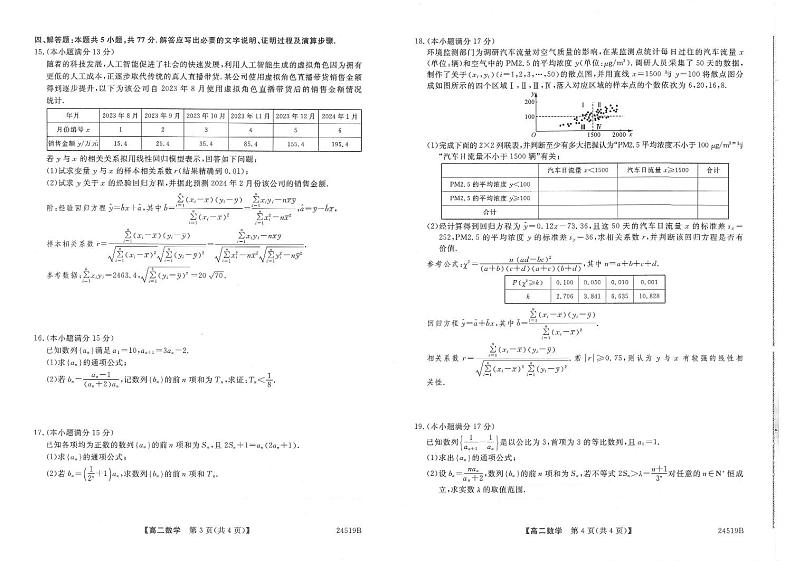 四、解答题：本题共 5 小题，共 77 分．解答应写出必要的文字说明、证明过程及演算步骤．
15．(本小题满分 13 分)
随着科技发展，人工智能促进了社会的快速发展，利用人工智能生成的虚拟角色因为拥有
更低的人工成本，正逐步取代传统的真人直播带货．某公司使用虚拟角色直播带货销售金额
得到逐步提升，以下为该公司自 2023 年 8 月使用虚拟角色直播带货后的销售金额情况
统计．
年月 2023 年 8 月 2023 年 9 月 2023 年 10 月 2023 年 11 月 2023 年 12 月 2024 年 1 月
月份编号 x 1 2 3 4 5 6
销售金额 y/万元 15.4 25.4 35.4 85.4 155.4 195.4
若 y 与 x 的相关关系拟用线性回归模型表示，回答如下问题：
(1)试求变量 y 与 x 的样本相关系数 r(结果精确到 0.01)；
(2)试求 y 关于 x 的经验回归方程，并据此预测 2024 年 2 月份该公司的销售金额．
附：经验回归方程 ŷ=b̂x+â，其中 b̂=∑(xᵢ-x̄)(yᵢ-ȳ)/∑(xᵢ-x̄)²=(∑xᵢyᵢ-nx̄ȳ)/(∑xᵢ²-nx̄²)，â=ȳ-b̂x̄，
样本相关系数 r=∑(xᵢ-x̄)(yᵢ-ȳ)/(√∑(xᵢ-x̄)²√∑(yᵢ-ȳ)²)=(∑xᵢyᵢ-nx̄ȳ)/(√∑xᵢ²-nx̄²√∑yᵢ²-nȳ²)．
参考数据：∑xᵢyᵢ=2463.4，√∑(yᵢ-ȳ)²=20√70．
16．(本小题满分 15 分)
已知数列{aₙ}满足 a₁=10，aₙ₊₁=3aₙ-2．
(1)求{aₙ}的通项公式；
(2)若 bₙ=(aₙ-1)/((aₙ+2)aₙ)，记数列{bₙ}的前 n 项和为 Tₙ，求证：Tₙ<1/8．
17．(本小题满分 15 分)
已知各项均为正数的数列{aₙ}的前 n 项和为 Sₙ，且 2Sₙ+1=aₙ(2aₙ+1)．
(1)求{aₙ}的通项公式；
(2)若 bₙ=(1/2ⁿ+1)aₙ，求数列{bₙ}的前 n 项和 Tₙ．
【高二数学 第 3 页(共 4 页)】 24519B
18．(本小题满分 17 分)
环境监测部门为调研汽车流量对空气质量的影响，在某监测点统计每日过往的汽车流量 x
(单位：辆)和空气中的 PM2.5 的平均浓度 y(单位：μg/m³)．调研人员采集了 50 天的数据，
制作了关于(xᵢ,yᵢ)(i=1,2,3,…,50)的散点图，并用直线 x=1500 与 y=100 将散点图分
成如图所示的四个区域Ⅰ、Ⅱ、Ⅲ、Ⅳ，落入对应区域的样本点的个数依次为 6,20,16,8．
y
200
Ⅰ Ⅱ
100
Ⅲ Ⅳ
1500 2000 x
(1)完成下面的 2×2 列联表，并判断至少有多大把握认为“PM2.5 平均浓度不小于 100 μg/m³”与
“汽车日流量不小于 1500 辆”有关；
汽车日流量 x<1500 汽车日流量 x≥1500 合计
PM2.5 的平均浓度 y<100
PM2.5 的平均浓度 y≥100
合计
(2)经计算得到回归方程为 ŷ=0.12x-73.36，且这 50 天的汽车日流量 x 的标准差 sₓ=
252，PM2.5 的平均浓度 y 的标准差 sᵧ=36，求相关系数 r，并判断该回归方程是否有
价值．
参考公式：χ²=n(ad-bc)²/((a+b)(c+d)(a+c)(b+d))，其中 n=a+b+c+d．
P(χ²≥k) 0.100 0.050 0.010 0.001
k 2.706 3.841 6.635 10.828
回归方程 ŷ=â+b̂x，其中 b̂=∑(xᵢ-x̄)(yᵢ-ȳ)/∑(xᵢ-x̄)²．
相关系数 r=∑(xᵢ-x̄)(yᵢ-ȳ)/√(∑(xᵢ-x̄)²∑(yᵢ-ȳ)²)．若|r|≥0.75，则认为 y 与 x 有较强的线性相
关性．
19．(本小题满分 17 分)
已知数列{1/aₙ₊₁-1/aₙ}是以公比为 3，首项为 3 的等比数列，且 a₁=1．
(1)求出{aₙ}的通项公式；
(2)设 bₙ=naₙ/(aₙ+2)，数列{bₙ}的前 n 项和为 Sₙ，若不等式 2Sₙ>λ-(n+1)/3ⁿ 对任意的 n∈N* 恒成
立，求实数 λ 的取值范围．
【高二数学 第 4 页(共 4 页)】 24519B